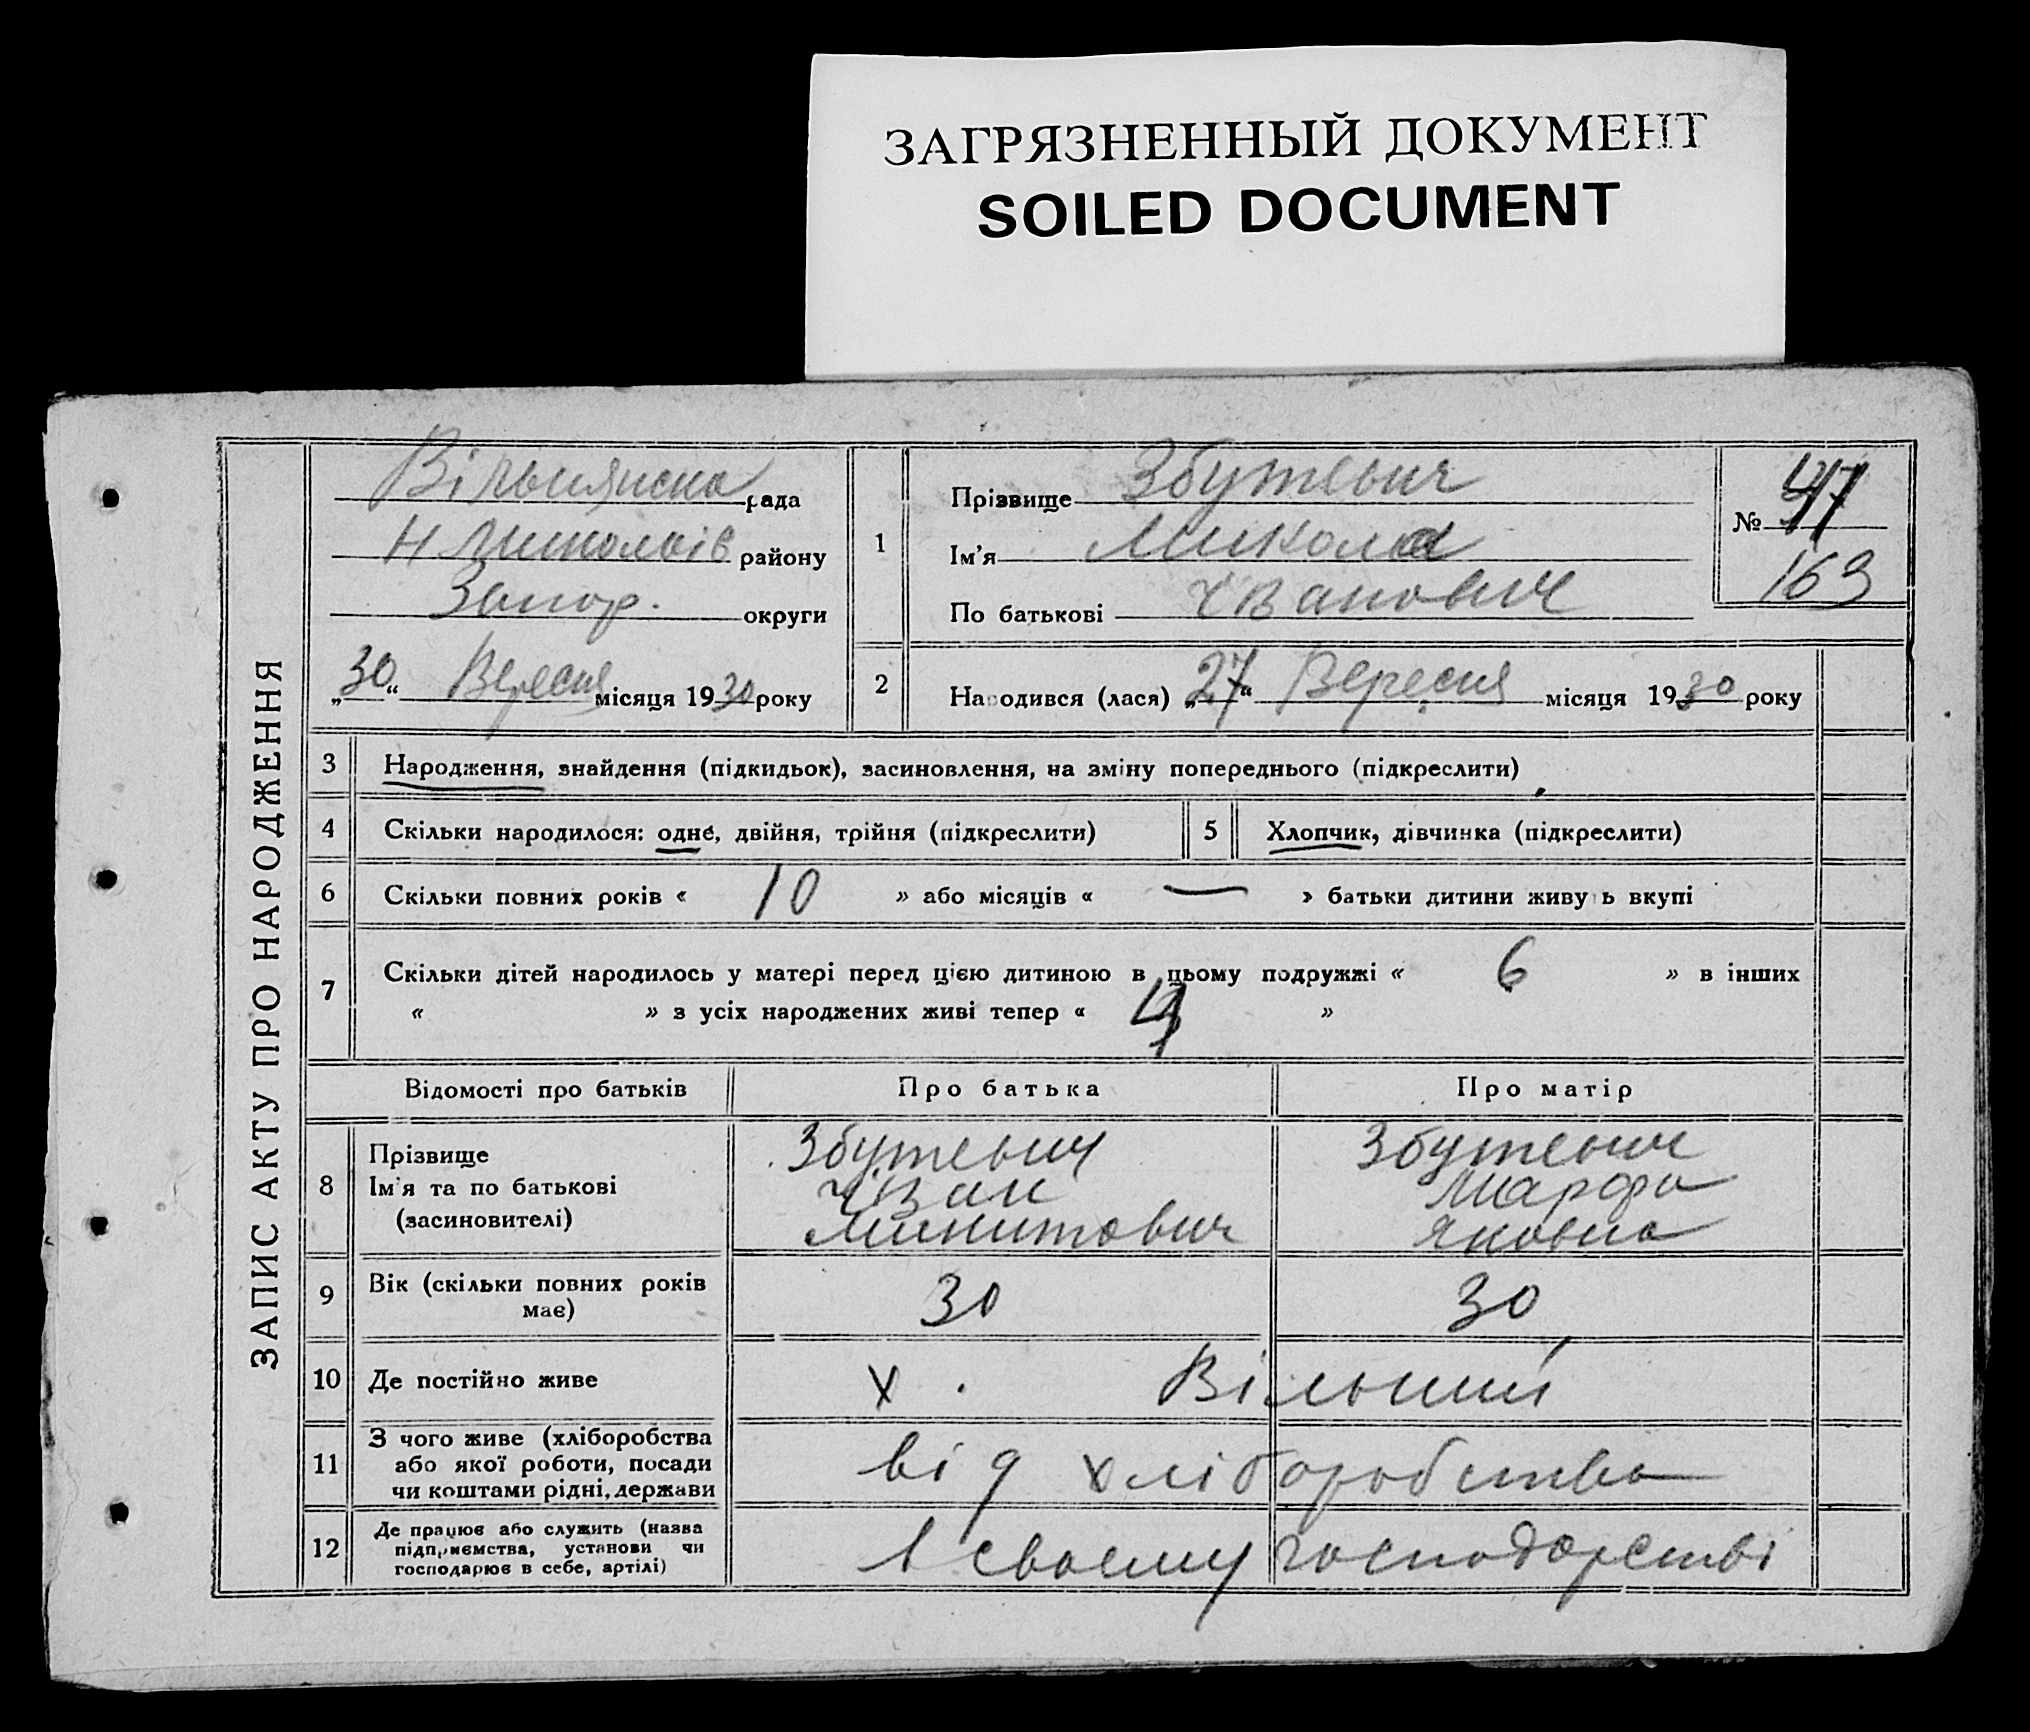 ЗАГРЯЗНЕННЫЙ ДОКУМЕНТ
SOILED DOCUMENT
ЗАПИС АКТУ ПРО НАРОДЖЕННЯ
Вільнянська рада
Н Миколаїв району
Запор. округи
„30“ Вересня місяця 1930 року
1
Прізвище Збутевич
Ім'я Микола
По батькові Іванович
№ 47
163
2 Народився (лася) „27“ Вересня місяця 1930 року
3 Народження, знайдення (підкидьок), засиновлення, на зміну попереднього (підкреслити)
4 Скільки народилося: одне, двійня, трійня (підкреслити) 5 Хлопчик, дівчинка (підкреслити)
6 Скільки повних років « 10 » або місяців « — » батьки дитини живуть вкупі
7 Скільки дітей народилось у матері перед цією дитиною в цьому подружжі « 6 » в інших
« » з усіх народжених живі тепер « »
Відомості про батьків Про батька Про матір
8 Прізвище Збутевич Збутевич
Ім'я та по батькові Іван Марфа
(засиновителі) Микитович Яковна
9 Вік (скільки повних років має) 30 30
10 Де постійно живе х. Вільний
11 З чого живе (хліборобства або якої роботи, посади чи коштами рідні, держави від хліборобства
12 Де працює або служить (назва підприємства, установи чи господарює в себе, артілі) в своєму господарстві